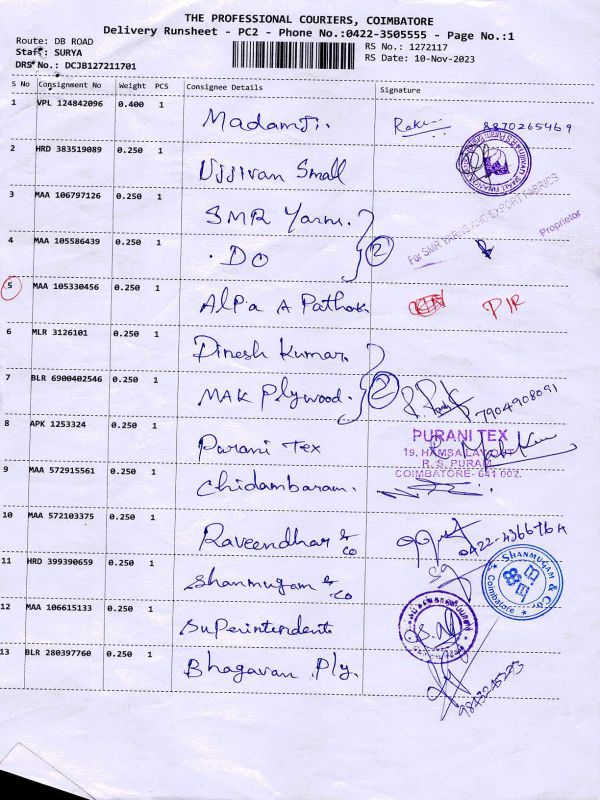 THE PROFESSIONAL COURIERS, COIMBATORE
Delivery Runsheet - PC2 - Phone No.:0422-3505555 - Page No.:1
Route: DB ROAD
RS No.: 1272117
Staff: SURYA
RS Date: 10-Nov-2023
DRS No.: DCJB127211701
S No Consignment No Weight PCS Consignee Details Signature
1 VPL 124842096 0.400 1 Madamji. 8870265469
2 HRD 383519089 0.250 1 Ujjivan Small
3 MAA 106797126 0.250 1 SMR Yarns.
For SMR YARNS AND EXPORT FABRICS
Proprietor
4 MAA 105586439 0.250 1 DO 2
5 MAA 105330456 0.250 1 Alpa A Pathak.
6 MLR 3126101 0.250 1 Dinesh Kumar.
7 BLR 6900402546 0.250 1 MAK Plywood. 2 7904908091
8 APK 1253324 0.250 1 Purani Tex
PURANI TEX
19, HAMSA LAYOUT
R. S. PURAM
COIMBATORE- 641 002.
9 MAA 572915561 0.250 1 Chidambaram.
10 MAA 572103375 0.250 1 Raveendhar & co
11 HRD 399390659 0.250 1 Shanmugam & co
SHANMUGAM & CO
Coimbatore
12 MAA 106615133 0.250 1 Superintendent
13 BLR 280397760 0.250 1 Bhagavan Ply.